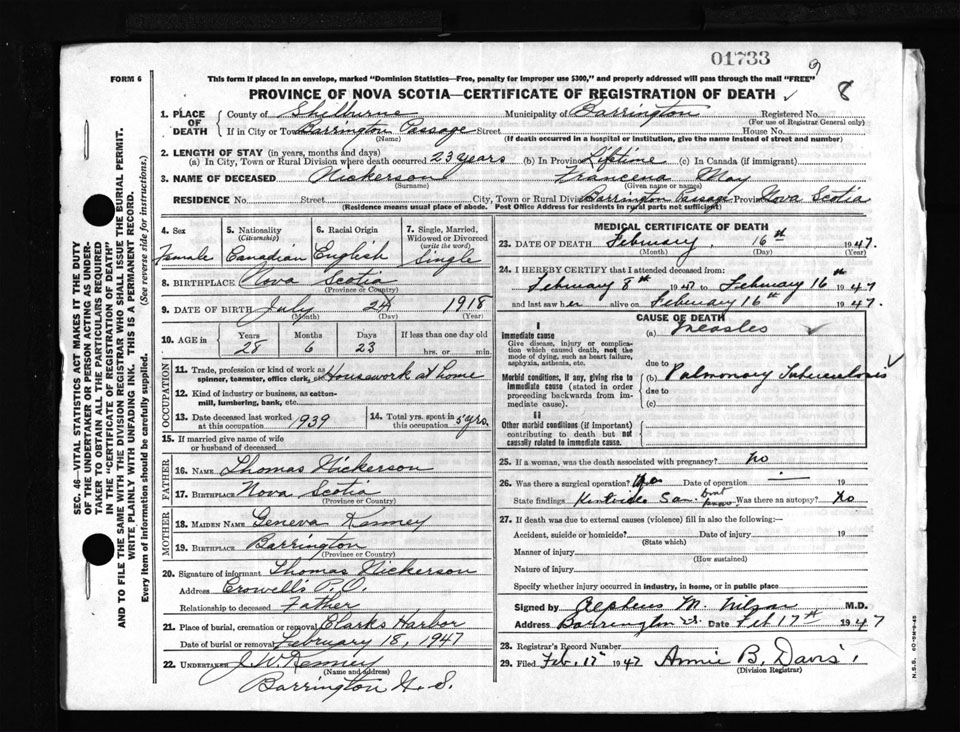 01733
9
8
FORM 6
This form if placed in an envelope, marked "Dominion Statistics—Free, penalty for improper use $300," and properly addressed will pass through the mail "FREE"
PROVINCE OF NOVA SCOTIA—CERTIFICATE OF REGISTRATION OF DEATH
1. PLACE OF DEATH County of Shelburne Municipality of Barrington Registered No.
(For use of Registrar General only)
If in City or Town Barrington Passage Street House No.
(Name) (If death occurred in a hospital or institution, give the name instead of street and number)
2. LENGTH OF STAY (in years, months and days)
(a) In City, Town or Rural Division where death occurred 23 years (b) In Province Lifetime (c) In Canada (if immigrant)
3. NAME OF DECEASED Nickerson Francena May
(Surname) (Given name or names)
RESIDENCE No. Street City, Town or Rural Division Barrington Passage Province Nova Scotia
(Residence means usual place of abode. Post Office Address for residents in rural parts not sufficient)
4. Sex 5. Nationality (Citizenship) 6. Racial Origin 7. Single, Married, Widowed or Divorced (write the word)
Female Canadian English Single
8. BIRTHPLACE Nova Scotia
(Province or Country)
9. DATE OF BIRTH July 24 1918
(Month) (Day) (Year)
10. AGE in Years Months Days If less than one day old
28 6 23 hrs. or min.
OCCUPATION
11. Trade, profession or kind of work as spinner, teamster, office clerk, etc. Housework at home
12. Kind of industry or business, as cotton-mill, lumbering, bank, etc.
13. Date deceased last worked at this occupation 1939 14. Total yrs. spent in this occupation 5 yrs.
15. If married give name of wife or husband of deceased
FATHER
16. NAME Thomas Nickerson
17. BIRTHPLACE Nova Scotia
MOTHER
18. MAIDEN NAME Geneva Kenney
19. BIRTHPLACE Barrington
(Province or Country)
20. Signature of informant Thomas Nickerson
Address Crowell's P.O.
Relationship to deceased Father
21. Place of burial, cremation or removal Clarks Harbor
Date of burial or removal February 18, 1947
22. UNDERTAKER J. W. Kenney
(Name and address)
Barrington N. S.
MEDICAL CERTIFICATE OF DEATH
23. DATE OF DEATH February, 16th 1947.
(Month) (Day) (Year)
24. I HEREBY CERTIFY that I attended deceased from:
February 8th 1947 to February 16th 1947
and last saw her alive on February 16th 1947.
CAUSE OF DEATH
I
Immediate cause
Give disease, injury or complication which caused death, not the mode of dying, such as heart failure, asphyxia, asthenia, etc.
(a) Measles
due to
Morbid conditions, if any, giving rise to immediate cause (stated in order proceeding backwards from immediate cause).
(b) Pulmonary Tuberculosis
due to
(c)
II
Other morbid conditions (if important) contributing to death but not causally related to immediate cause.
25. If a woman, was the death associated with pregnancy? No
26. Was there a surgical operation? Date of operation 19
State findings San. Was there an autopsy? No
27. If death was due to external causes (violence) fill in also the following:—
Accident, suicide or homicide? Date of injury 19
(State which)
Manner of injury
(How sustained)
Nature of injury
Specify whether injury occurred in industry, in home, or in public place
Signed by Alpheus M. Wilson M.D.
Address Barrington N.S. Date Feb 17th 1947
28. Registrar's Record Number
29. Filed Feb. 17 1947 Annie B. Davis
(Division Registrar)
SEC. 46—VITAL STATISTICS ACT MAKES IT THE DUTY
OF THE UNDERTAKER OR PERSON ACTING AS UNDER-
TAKER TO OBTAIN ALL THE PARTICULARS REQUIRED
IN THE "CERTIFICATE OF REGISTRATION OF DEATH"
AND TO FILE THE SAME WITH THE DIVISION REGISTRAR WHO SHALL ISSUE THE BURIAL PERMIT.
WRITE PLAINLY WITH UNFADING INK. THIS IS A PERMANENT RECORD.
Every item of information should be carefully supplied. (See reverse side for instructions.)